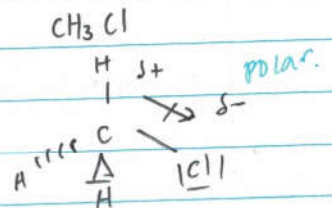 CH3 Cl
H δ+
polar.
δ-
C
H
|Cl|
H